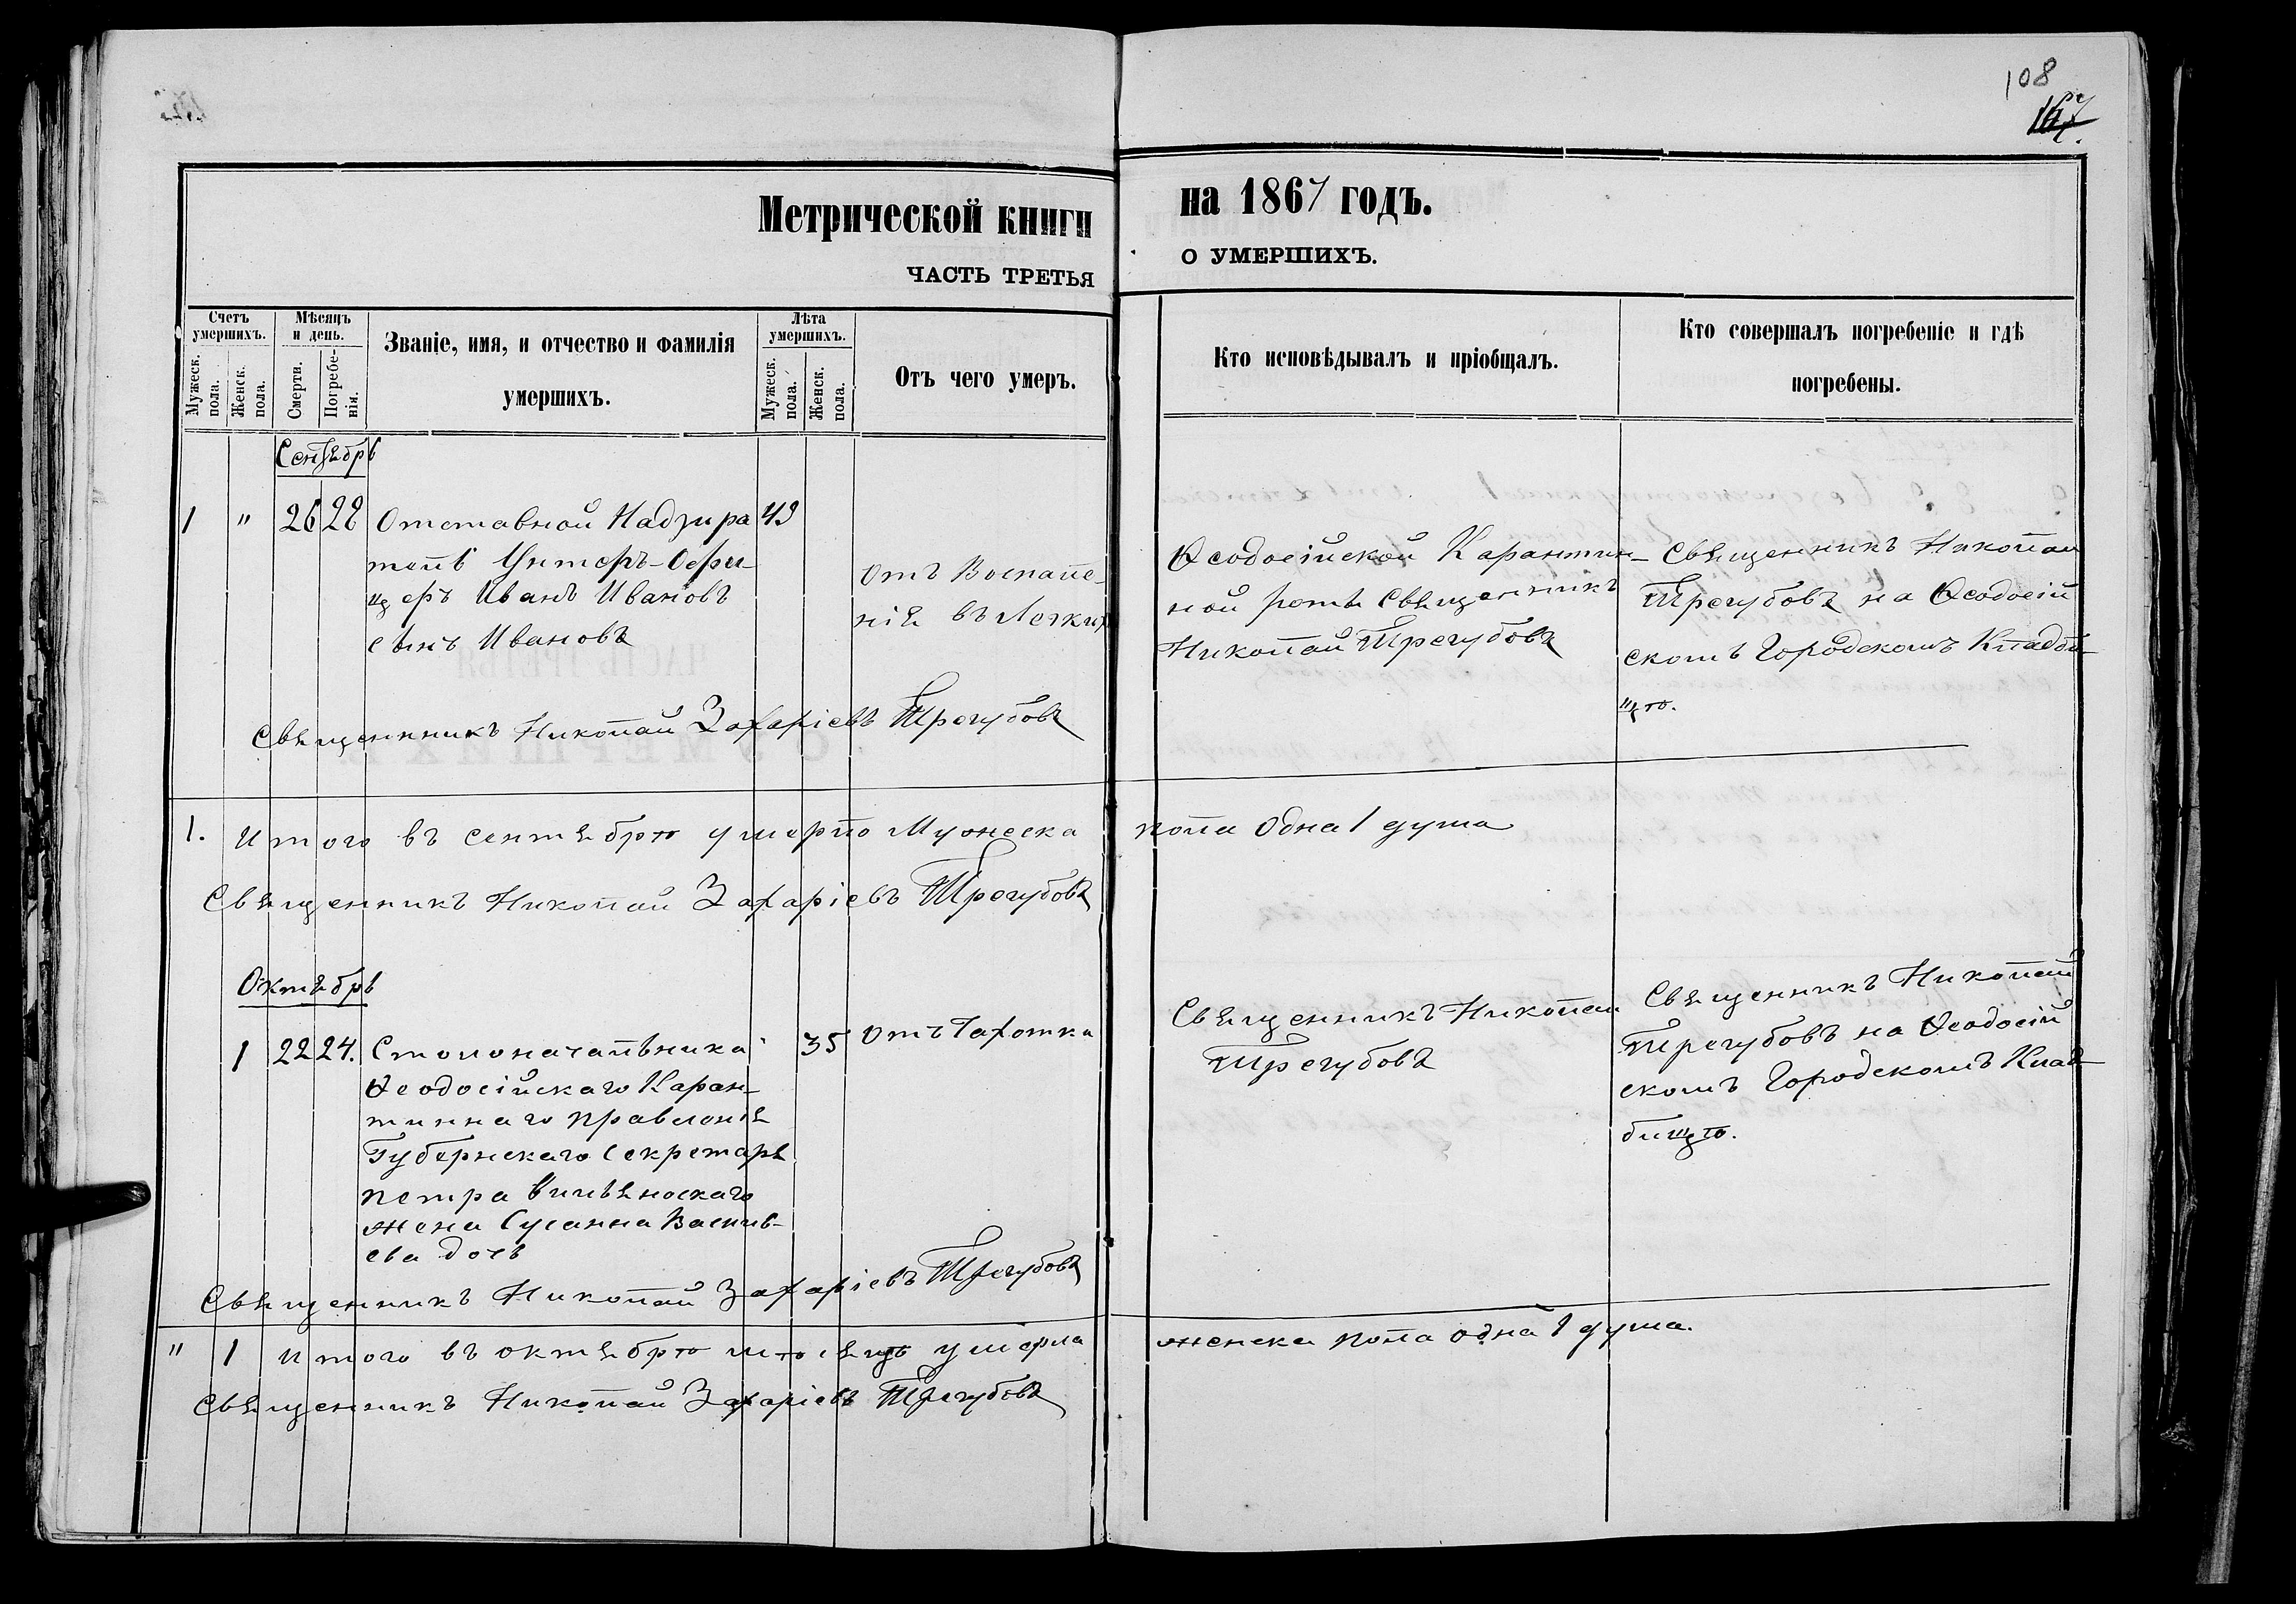 108
Метрической книги на 1867 годъ.
ЧАСТЬ ТРЕТЬЯ О УМЕРШИХЪ.
Счетъ умершихъ.
Мужеск. пола.
Женск. пола.
Мѣсяцъ и день.
Смерти.
Погребенія.
Званіе, имя, и отчество и фамилія
умершихъ.
Лѣта умершихъ.
Мужеск. пола.
Женск. пола.
Отъ чего умеръ.
Кто исповѣдывалъ и пріобщалъ.
Кто совершалъ погребеніе и гдѣ
погребены.
Сентябрь
1 " 26 28 Отставной Надзира 49
тель Унтеръ-Офи-
церъ Иванъ Ивановъ
сынъ Ивановъ
отъ Воспале-
нія въ Легких
Ѳеодосійской Карантин-
ной роты Священникъ
Николай Трегубовъ
Священникъ Николай
Трегубовъ на Ѳеодосій
скомъ Городскомъ Кладби-
щѣ.
Священникъ Николай Захаріевъ Трегубовъ
1. Итого въ сентябрѣ умерло Мужеска пола одна 1 душа
Священникъ Николай Захаріевъ Трегубовъ
Октябрь
1 22 24. Столоначальника 35 отъ Чахотки
Ѳеодосійскаго Каран-
тиннаго правленія
Губернскаго Секретаря
Петра
жена Сусанна Василь-
ева дочь
Священникъ Николай
Трегубовъ
Священникъ Николай
Трегубовъ на Ѳеодосій
скомъ Городскомъ Клад-
бищѣ.
Священникъ Николай Захаріевъ Трегубовъ
" 1 Итого въ октябрѣ мѣсяцѣ умерла женска пола одна 1 душа.
Священникъ Николай Захаріевъ Трегубовъ